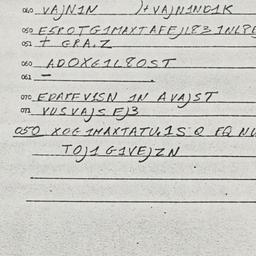 040 VAJN1N )+VAJN1ND1K
050 ESPOTG1MAXTAFEJ1831NLP
051 + GRA.Z
060 ADOXG1L8OST
061 —
070 EDAFFV1SN 1N AVAJST
071 VUSVAJS EJ3
050 XOG 1MAXTATU.1S Q FQ NU
TOJ1 G1VEJZN